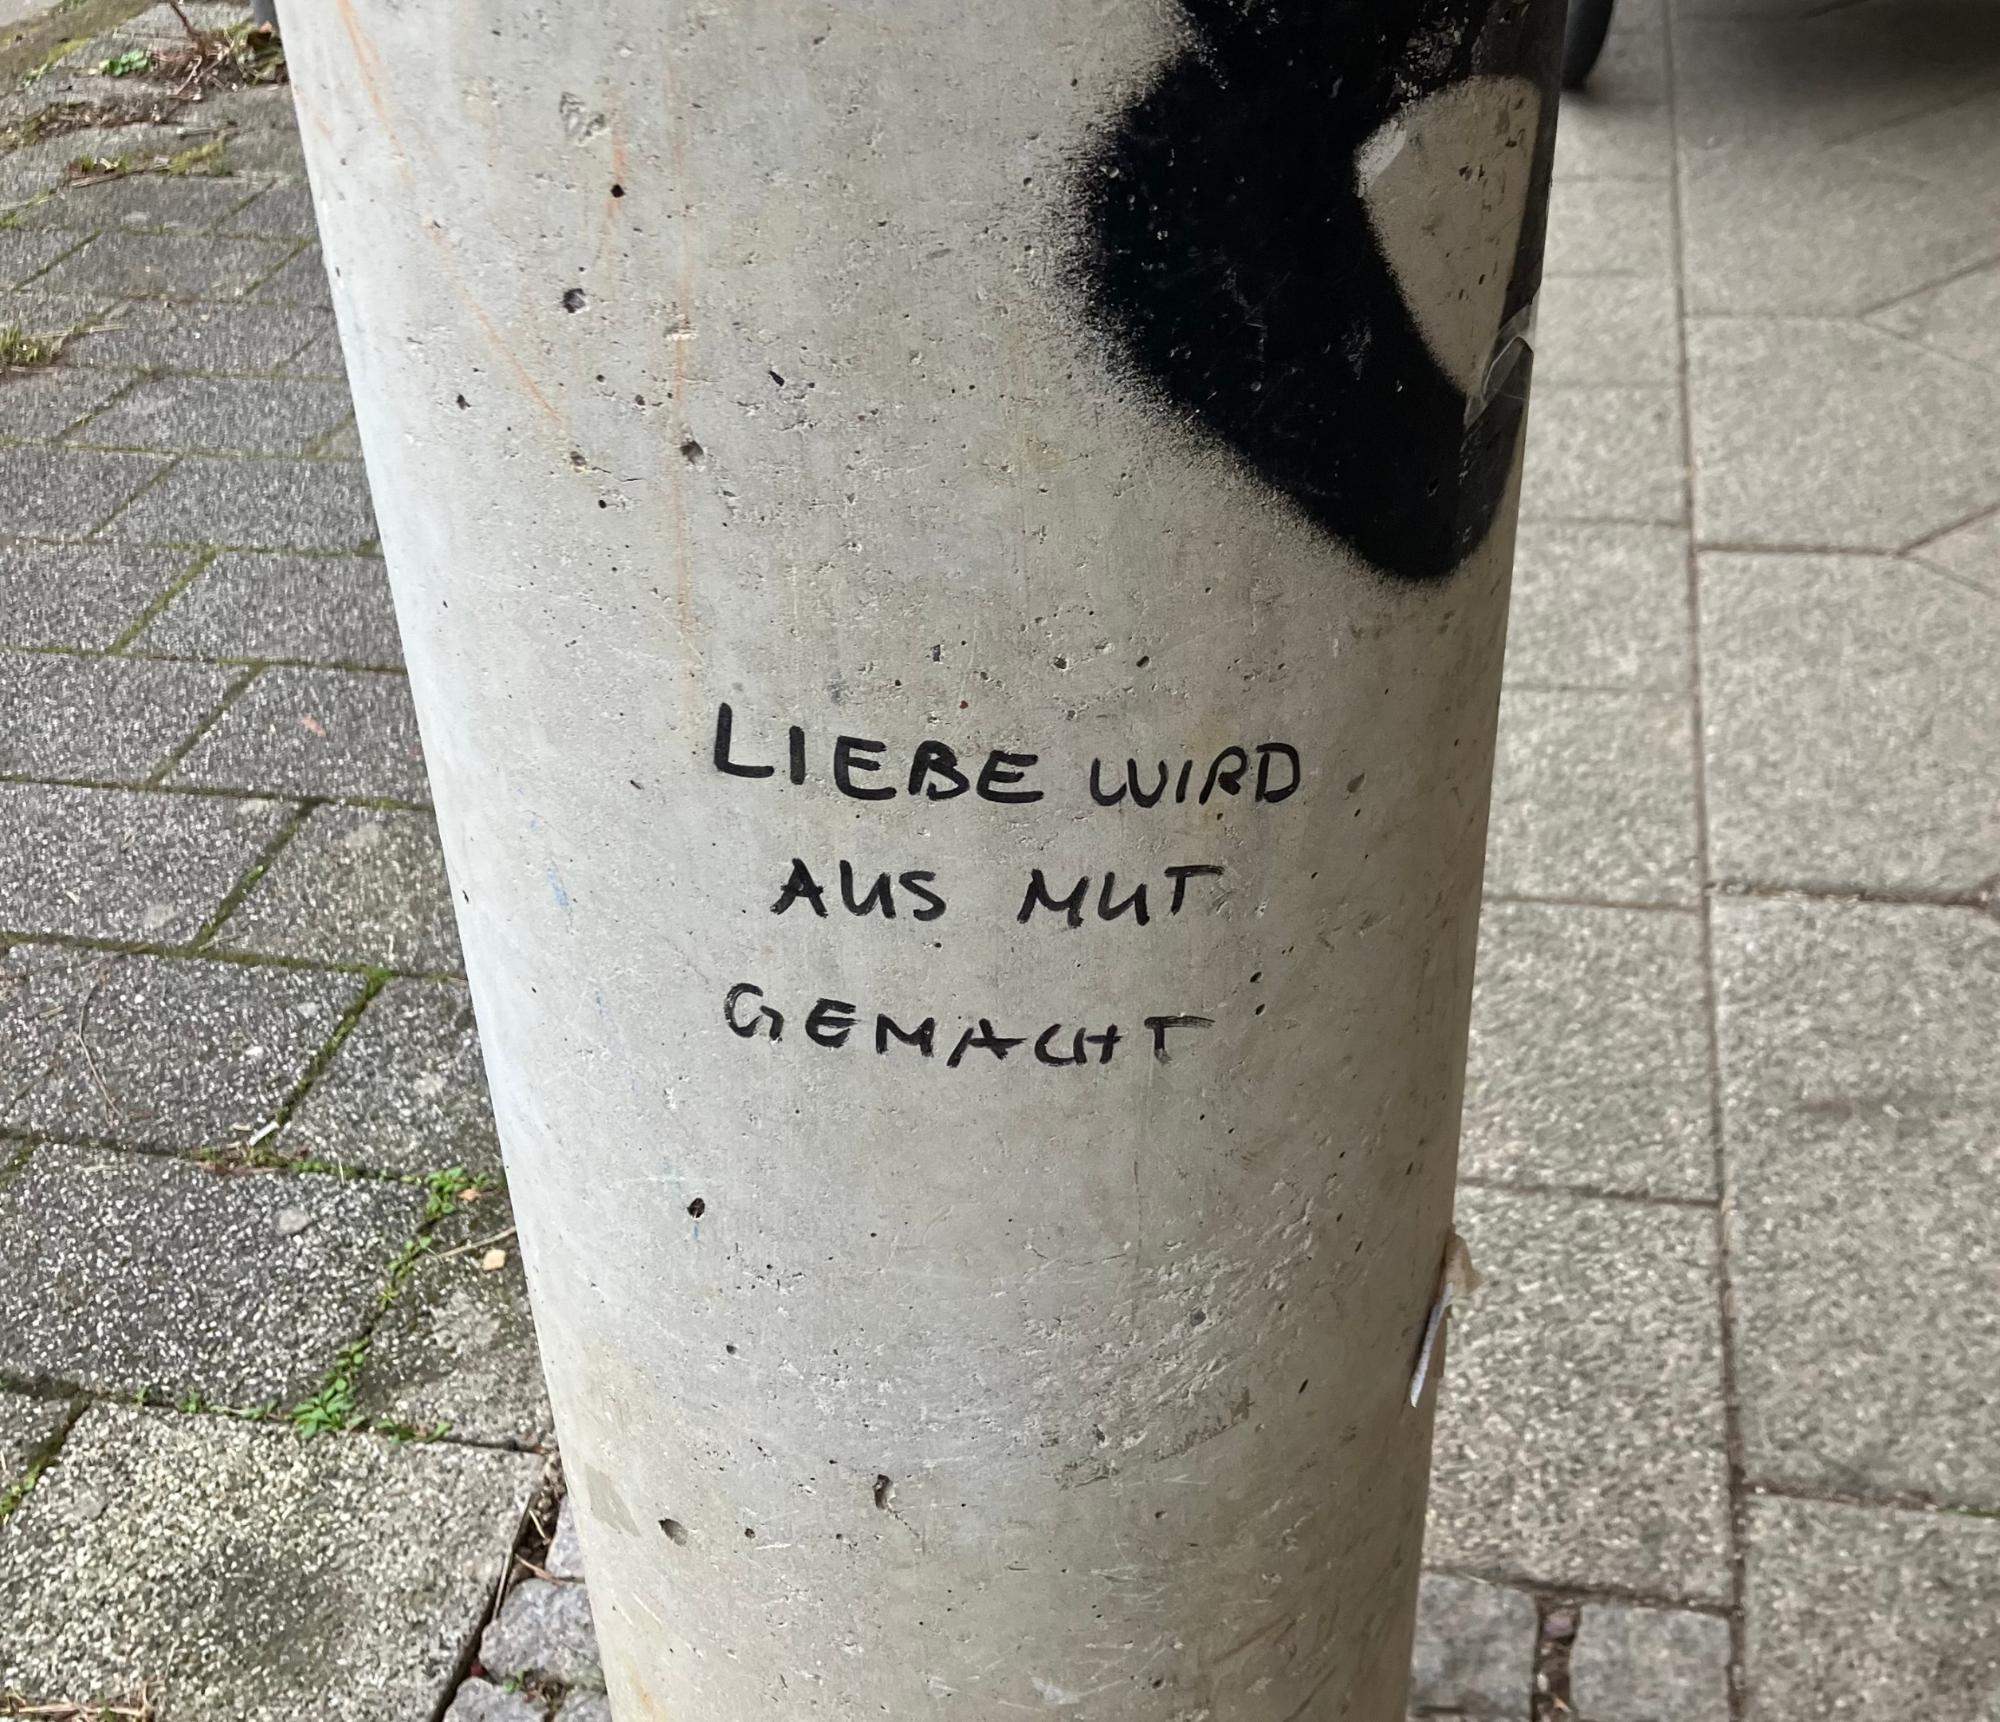 LIEBE WIRD
AUS MUT
GEMACHT